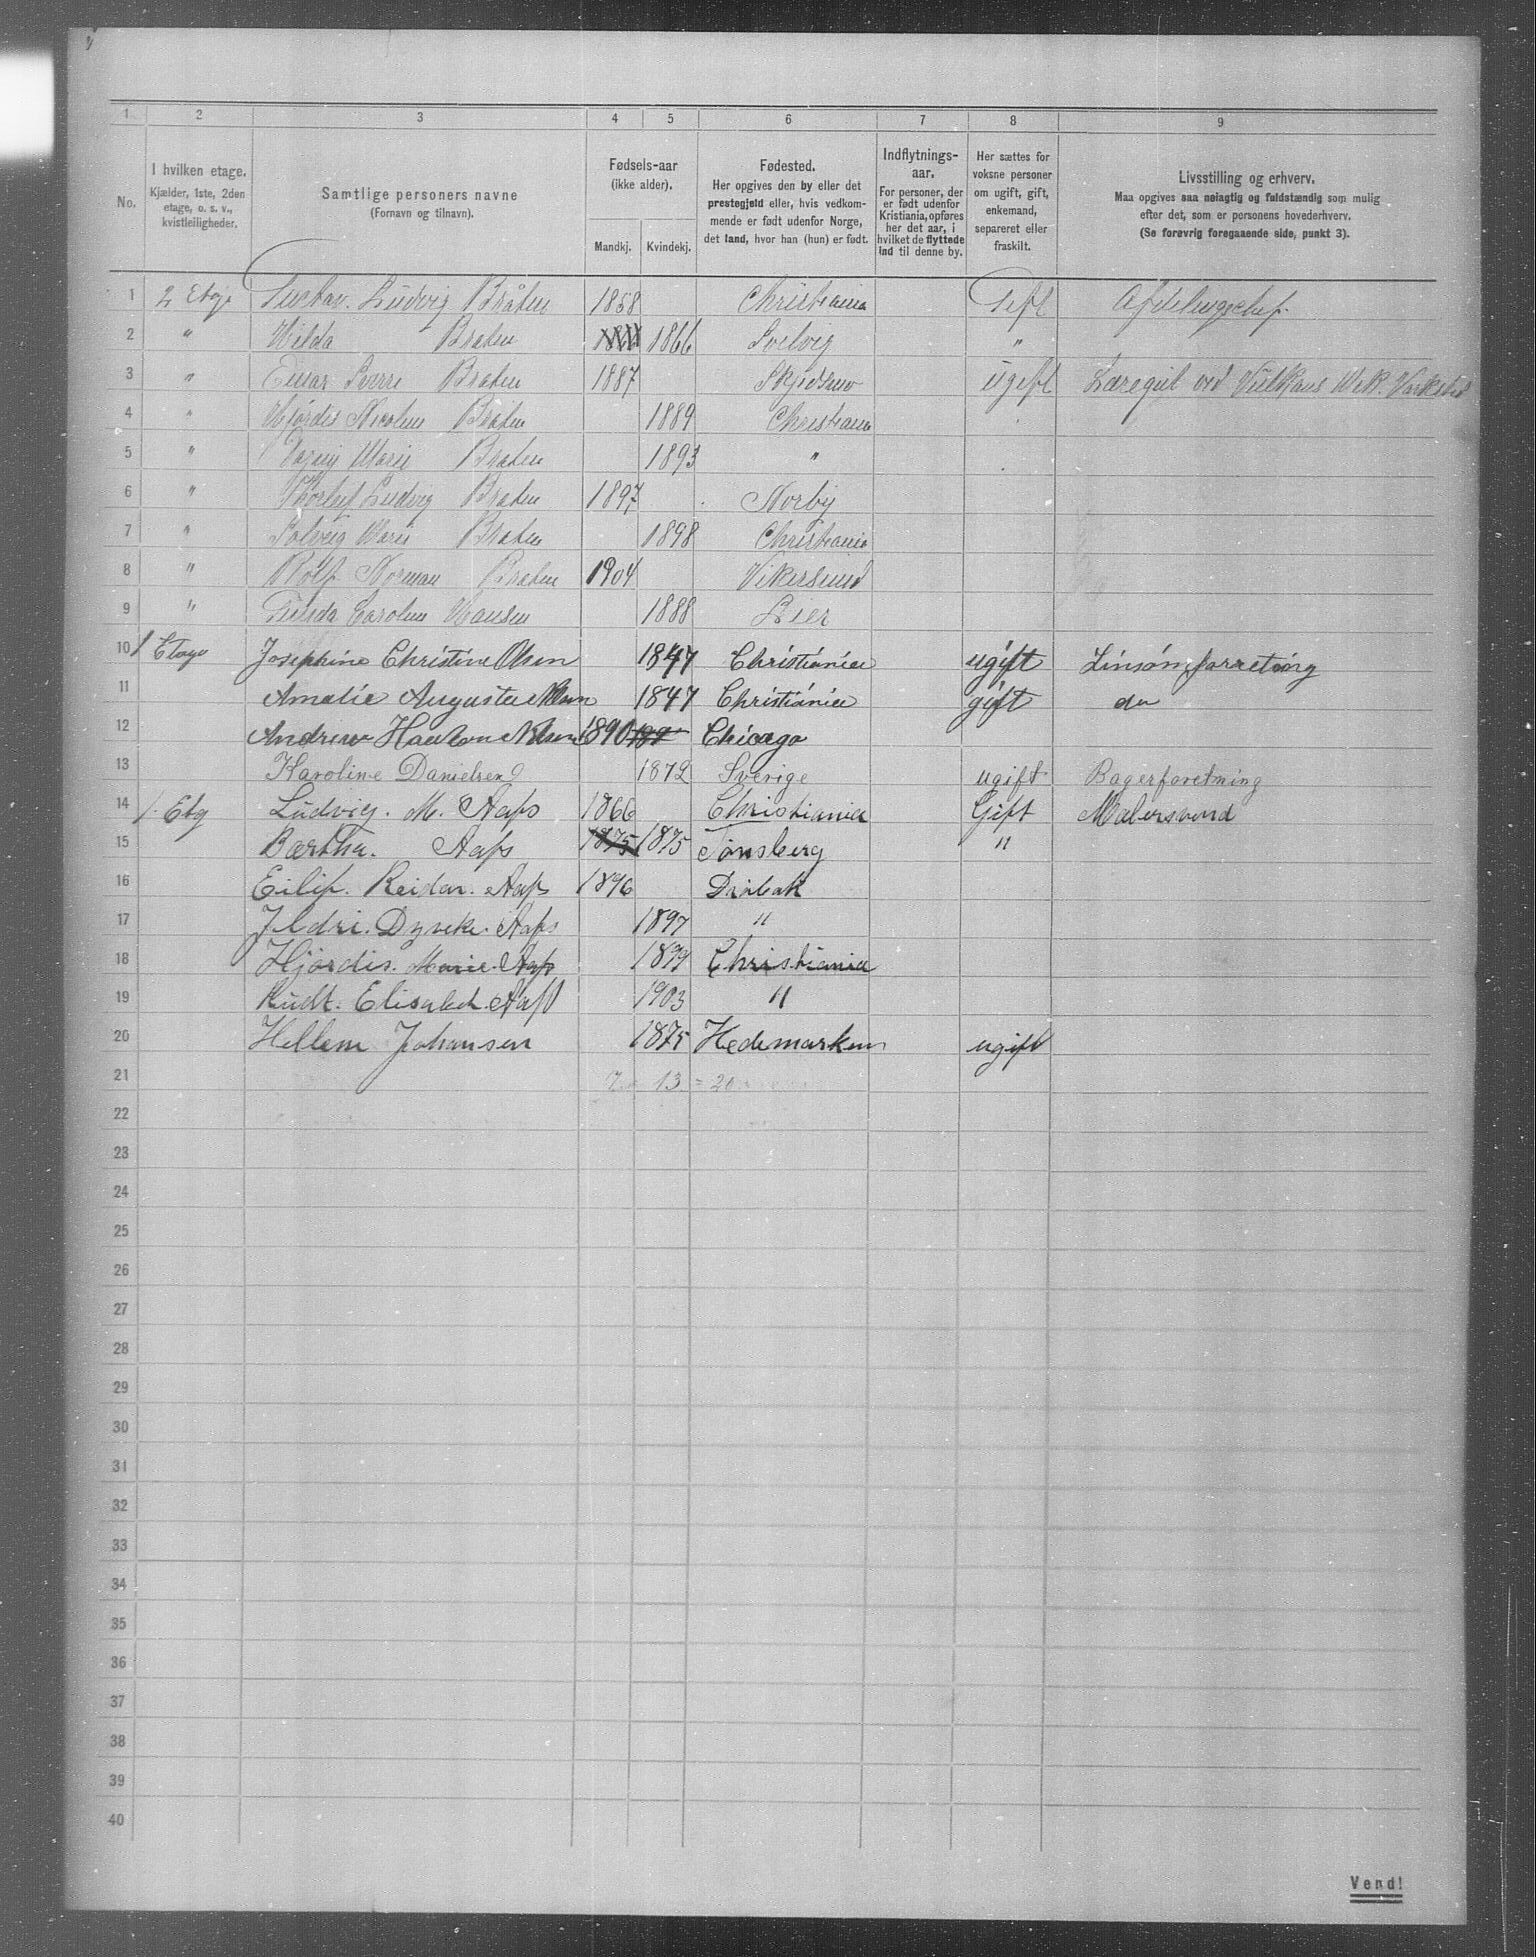 1 2 3 4 5 6 7 8 9
No.
I hvilken etage.
Kjælder, 1ste, 2den
etage, o. s. v.,
kvistleiligheder.
Samtlige personers navne
(Fornavn og tilnavn).
Fødsels-aar
(ikke alder).
Mandkj. Kvindekj.
Fødested.
Her opgives den by eller det
prestegjeld eller, hvis vedkom-
mende er født udenfor Norge,
det land, hvor han (hun) er født.
Indflytnings-
aar.
For personer, der
er født udenfor
Kristiania, opføres
her det aar, i
hvilket de flyttede
ind til denne by.
Her sættes for
voksne personer
om ugift, gift,
enkemand,
separeret eller
fraskilt.
Livsstilling og erhverv.
Maa opgives saa nøiagtig og fuldstændig som mulig
efter det, som er personens hovederhverv.
(Se forøvrig foregaaende side, punkt 3).
1 2 Etage Gustav. Ludvig Bråten 1858 Christiania Gift Afdelingschef.
2 " Hilda Braten 1866 Svelvig "
3 " Einar Sverre Braten 1887 Skjedsmo ugift Læregut ved Vulkans Mek. Værksted
4 " Hjørdis Nicoline Bråten 1889 Christiania
5 " Dagny Marie Braten 1893 "
6 " Thorleif Ludvig Braten 1897 Norby
7 " Solveig Marie Braten 1898 Christiania
8 " Rolf Norman Braten 1904 Vikersund
9 " Gunda Caroline Hansen 1888 Lier
10 1 Etage Josephine Christine Olsen 1847 Christiania ugift Linsømforretning
11 Amalie Augusta Olsen 1847 Christiania gift do
12 Andrew Olsen 1890 Chicago
13 Karoline Danielsen 1872 Sverige ugift Bagerforetning
14 1. Etg Ludvig. M. Aafs 1866 Christiania Gift Malersvend
15 Bærtha. Aafs 1875 1875 Tønsberg "
16 Eilif. Reidar. Aafs 1896 Drøbak
17 Jldri. Dyveke. Aafs 1897 "
18 Hjørdis. Marie. Aafs 1899 Christiania
19 Rudt. Elisabet. Aafs 1903 "
20 Hellem Johansen 1875 Hedemarken ugift
21 7 13 = 20
22
23
24
25
26
27
28
29
30
31
32
33
34
35
36
37
38
39
40
Vend!